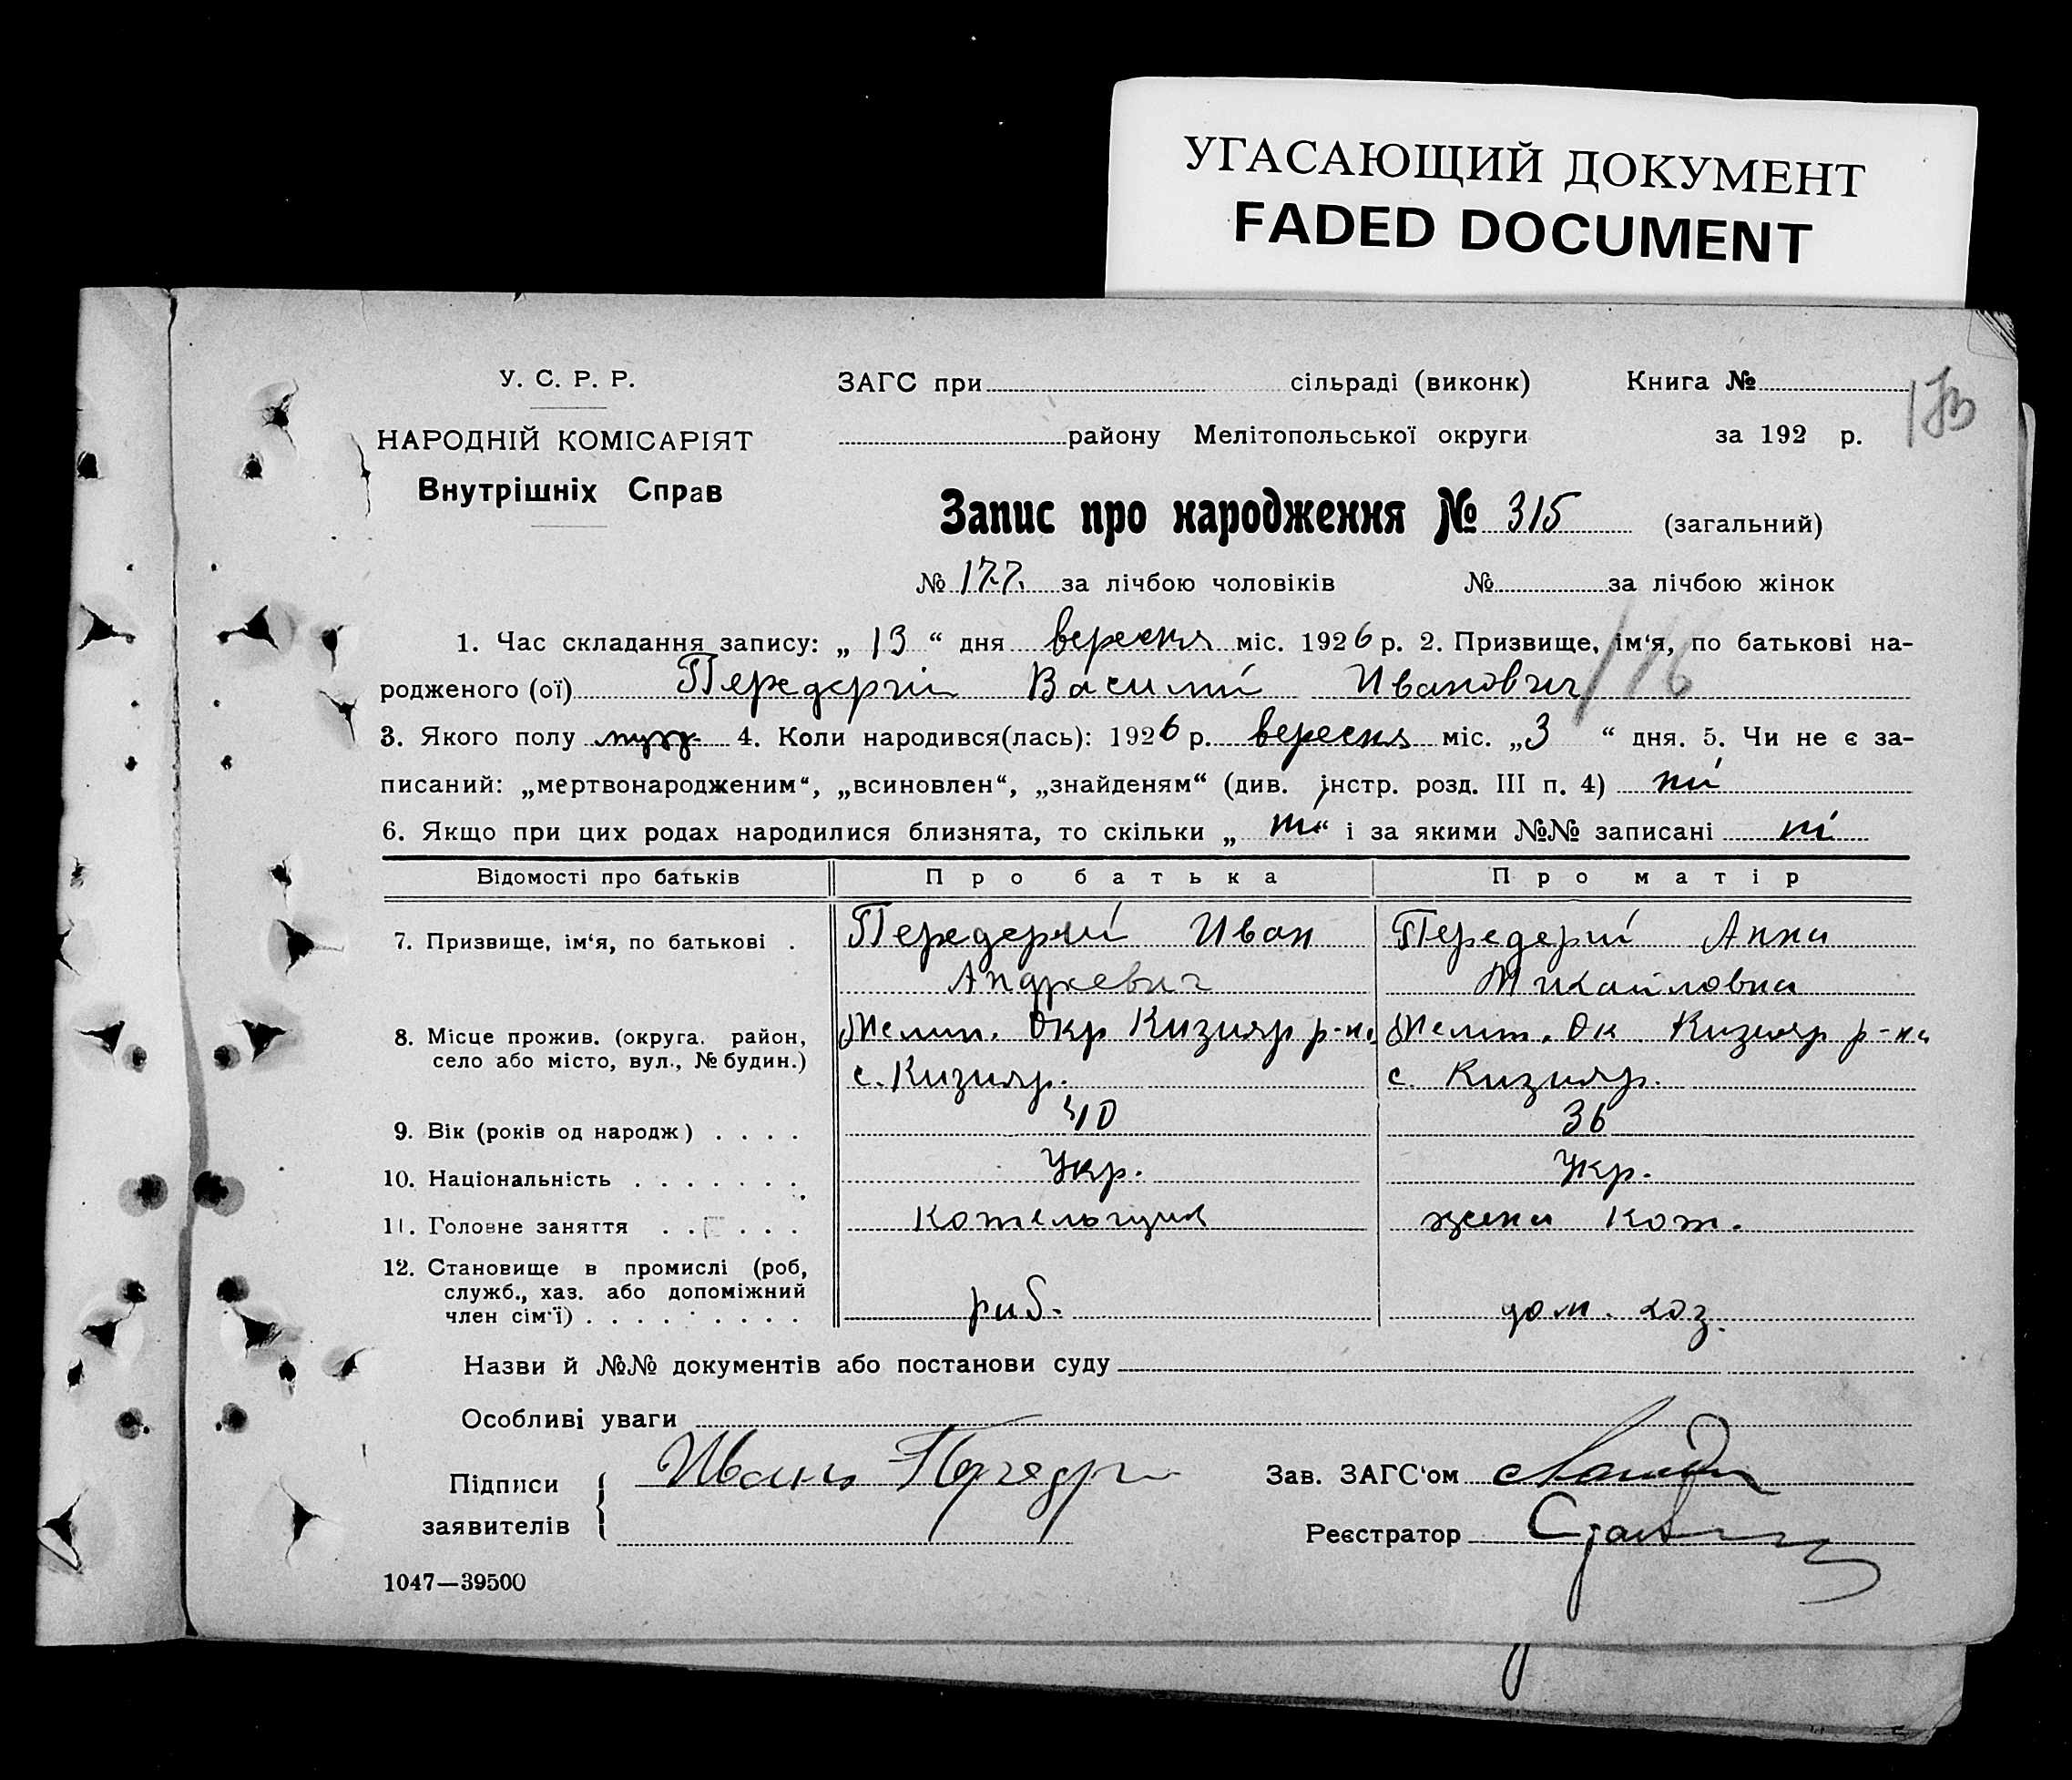 УГАСАЮЩИЙ ДОКУМЕНТ
FADED DOCUMENT
У. С. Р. Р.
НАРОДНІЙ КОМІСАРІЯТ
Внутрішніх Справ
ЗАГС при сільраді (виконк) Книга №
району Мелітопольської округи за 192 р.
Запис про народження № 315 (загальний)
№ 177. за лічбою чоловіків № за лічбою жінок
1. Час складання запису: „ 13 “ дня вересня міс. 1926 р. 2. Призвище, ім‘я, по батькові на-
родженого (ої) Передерій Василий Иванович 116
3. Якого полу муж. 4. Коли народився(лась): 1926 р. вересня міс. „3 “ дня. 5. Чи не є за-
писаний: „мертвонародженим“, „всиновлен“, „знайденям“ (див. інстр. розд. III п. 4) ні
6. Якщо при цих родах народилися близнята, то скільки „ “ і за якими №№ записані ні
Відомості про батьків Про батька Про матір
7. Призвище, ім‘я, по батькові . Передерий Иван Передерий Анна
Андреевич Михайловна
8. Місце прожив. (округа. район, Мелит. Окр Кизияр р-на Мелит. Ок Кизияр р-на
село або місто, вул., № будин.) с. Кизияр. с. Кизияр.
9. Вік (років од народж) . . . . 40 36
10. Національність . . . . . . . Укр. Укр.
11. Головне заняття . . . . . . Котельщик жена кот.
12. Становище в промислі (роб,
служб., хаз. або допоміжний
член сім‘ї) . . . . . . . . . раб. дом. хоз.
Назви й №№ документів або постанови суду
Особливі уваги
Підписи Иванъ Зав. ЗАГС‘ом
заявителів Реєстратор
1047—39500